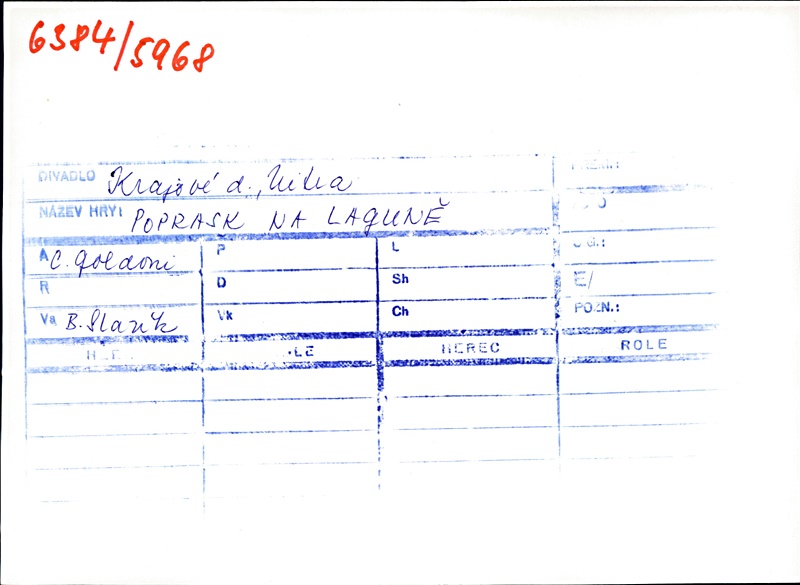 6384/5968
DIVADLO Krajové d., Nitra
NÁZEV HRY: POPRASK NA LAGUNĚ
A C. Goldoni P L
R D Sh E/
Va B. Slavík Vk Ch POZN.:
HEREC ROLE